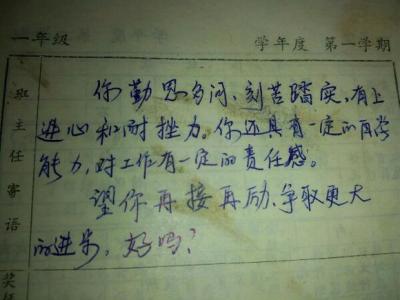 一年级 学年度 第一学期
班主任寄语
你勤思多问、刻苦踏实，有上
进心和耐挫力。你还具有一定的自学
能力，对工作有一定的责任感。
望你再接再励、争取更大
的进步，好吗？
奖